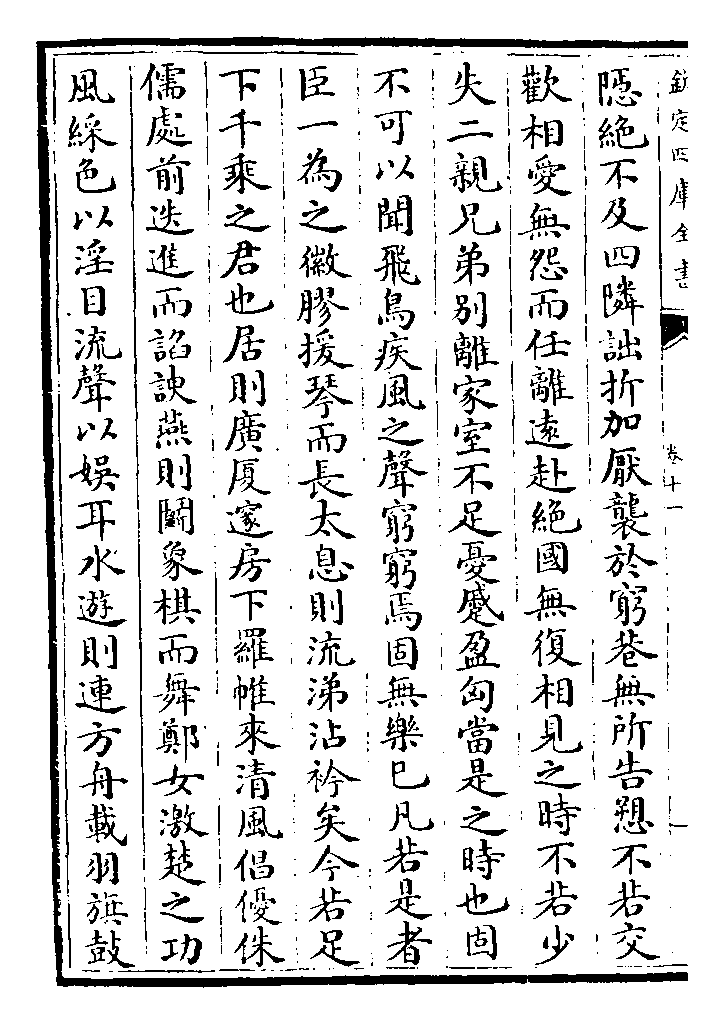 欽定四庫全書
卷十一
隱絶不及四隣詘折加厭襲於窮巷無所告愬不若交
歡相愛無怨而任離逺赴絶國無復相見之時不若少
失二親兄弟别離家室不足憂慼盈匈當是之時也固
不可以聞飛鳥疾風之聲窮窮焉固無樂已凡若是者
臣一為之徽膠援琴而長太息則流涕沾衿矣今若足
下千乘之君也居則廣厦邃房下羅帷來清風倡優侏
儒處前迭進而諂諛燕則鬭象棋而舞鄭女激楚之功
風綵色以淫目流聲以娯耳水遊則連方舟載羽旗鼓